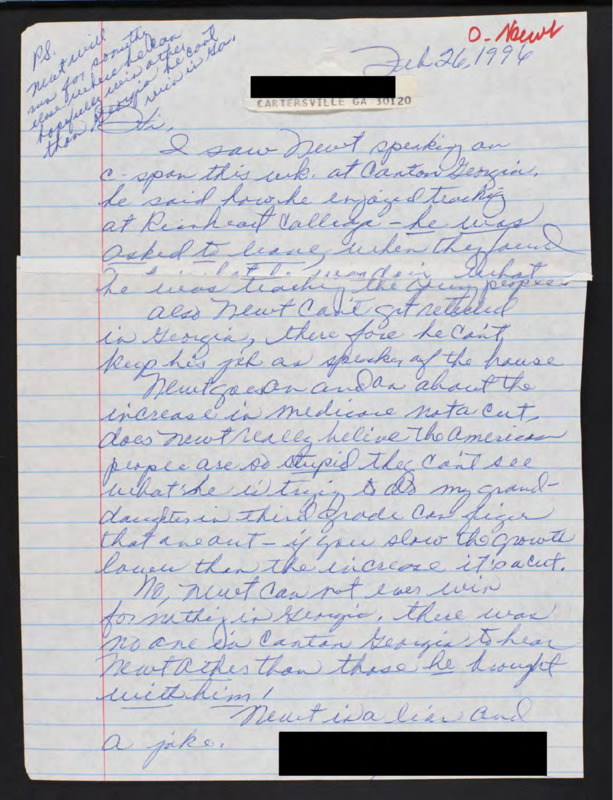 O-Newt
Feb. 26, 1996
CARTERSVILLE GA 30120
P.S.
Newt will
run for
else where he can
hopefully win other
than Georgia, he cant
win in Ga.
Hi,
I saw Newt speaking on
c-span this wk. at Canton Georgia.
he said how he enjoyed teaching
at Rienheart Collage - he was
asked to leave, when they found
what
he was teaching the young people
also Newt Can't get reelected
in Georgia, there fore he Can't
keep his job as speaker of the house
Newt goes on and on about the
increase in medicare not a cut,
does Newt really belive the american
people are so stupid they can't see
what he is trying to do my grand-
daughter in third grade can figer
that one out - if you slow the growth
lower than the increase it's a cut.
No, Newt can not ever win
for nothing in Georgia. there was
no one in Canton Georgia to hear
Newt other than those he brought
with him!
Newt is a liar and
a joke.